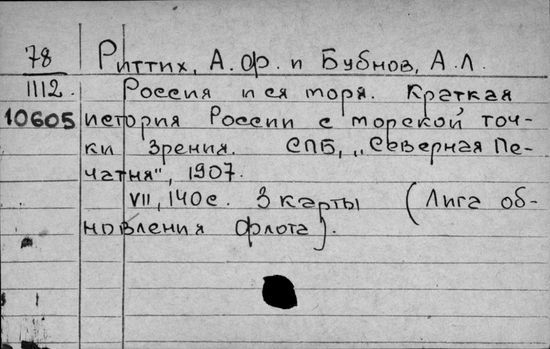 78 Риттих, А. Ф. и Бубнов, А. Л.
1112. Россия и ея моря. Краткая
10605 история России с морской точ-
ки зрения. СПБ, „Северная Пе-
чатня", 1907.
VII, 140 с. 3 карты (Лига об-
новления флота).